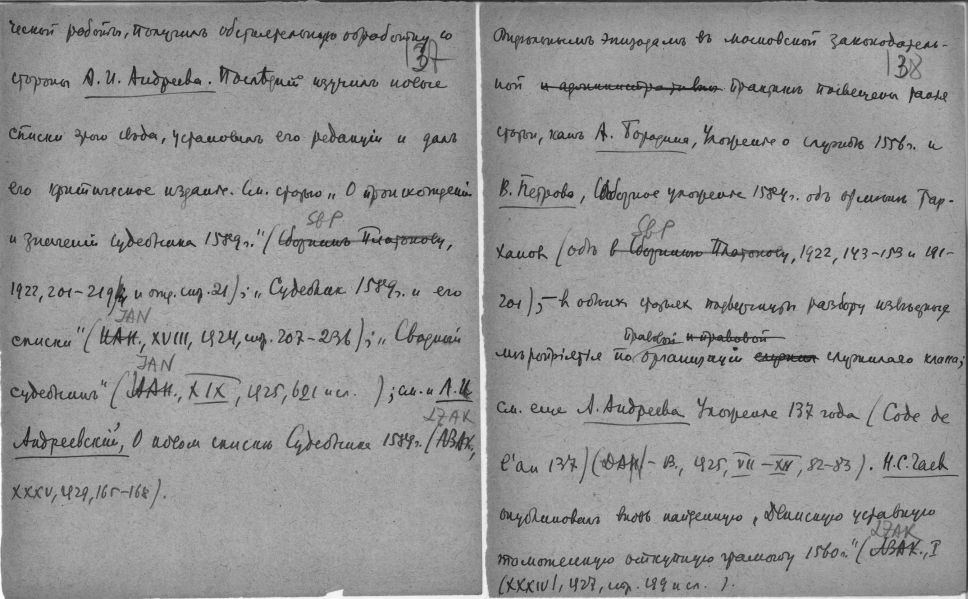 ческой работы, получилъ обстоятельную обработку со
137
стороны А. И. Андреева. Последній изучилъ новые
списки этого свода, установилъ его редакціи и далъ
его критическое изданіе. См. статью „О происхожденіи
SbP
и значеніи Судебника 1589г." (Сборникъ Платонову,
1922, 201-219 и отд. стр. 21); „Судебник 1589г. и его
JAN
списки" (ИАН., XVIII, 1924, стр. 207-236); „Сводный
JAN
судебникъ" (ИАН., XIX, 1925, 621 и сл. ); см. и А. И.
IZAK
Андреевскій, О новом списке Судебника 1589г. (ЛЗАК,
XXXV, 1929, 165-168).
138
Отдельнымъ эпизодамъ въ московской законодатель-
ной и административн практикѣ посвещены ранѣе
статьи, какъ А. Бородина, Уложеніе о службѣ 1556г. и
В. Петрова, Соборное уложеніе 1584г. объ отмѣнѣ Тар-
SbP
ханов (обѣ в Сборникѣ Платонову, 1922, 143-153 и 191-
201); - в обеихъ статьях подвергнуты разбору
правовой и правовой
мѣропріятія по организаціи служилаго класса;
см. еще А. Андреева Уложеніе 137 года (Code de
l'an 137) (ДАН - В., 1925, VII - XII, 82-83). Н. С. Чаев
опубликовалъ вновь найденную „Двинскую уставную
IZAK
таможенную откупную грамоту 1560г." (ЛЗАК., I
(XXXIV), 1927, стр. 199 и сл. ).